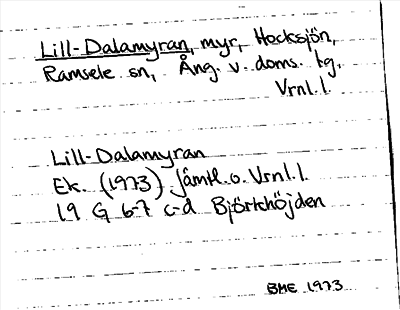 Lill-Dalamyran, myr, Hocksjön,
Ramsele sn, Ång. v. doms. tg,
Vrnl. l.
Lill-Dalamyran
Ek. (1973) Jämtl. o. Vrnl. l.
19 G 6-7 c-d Björkhöjden
BME 1973